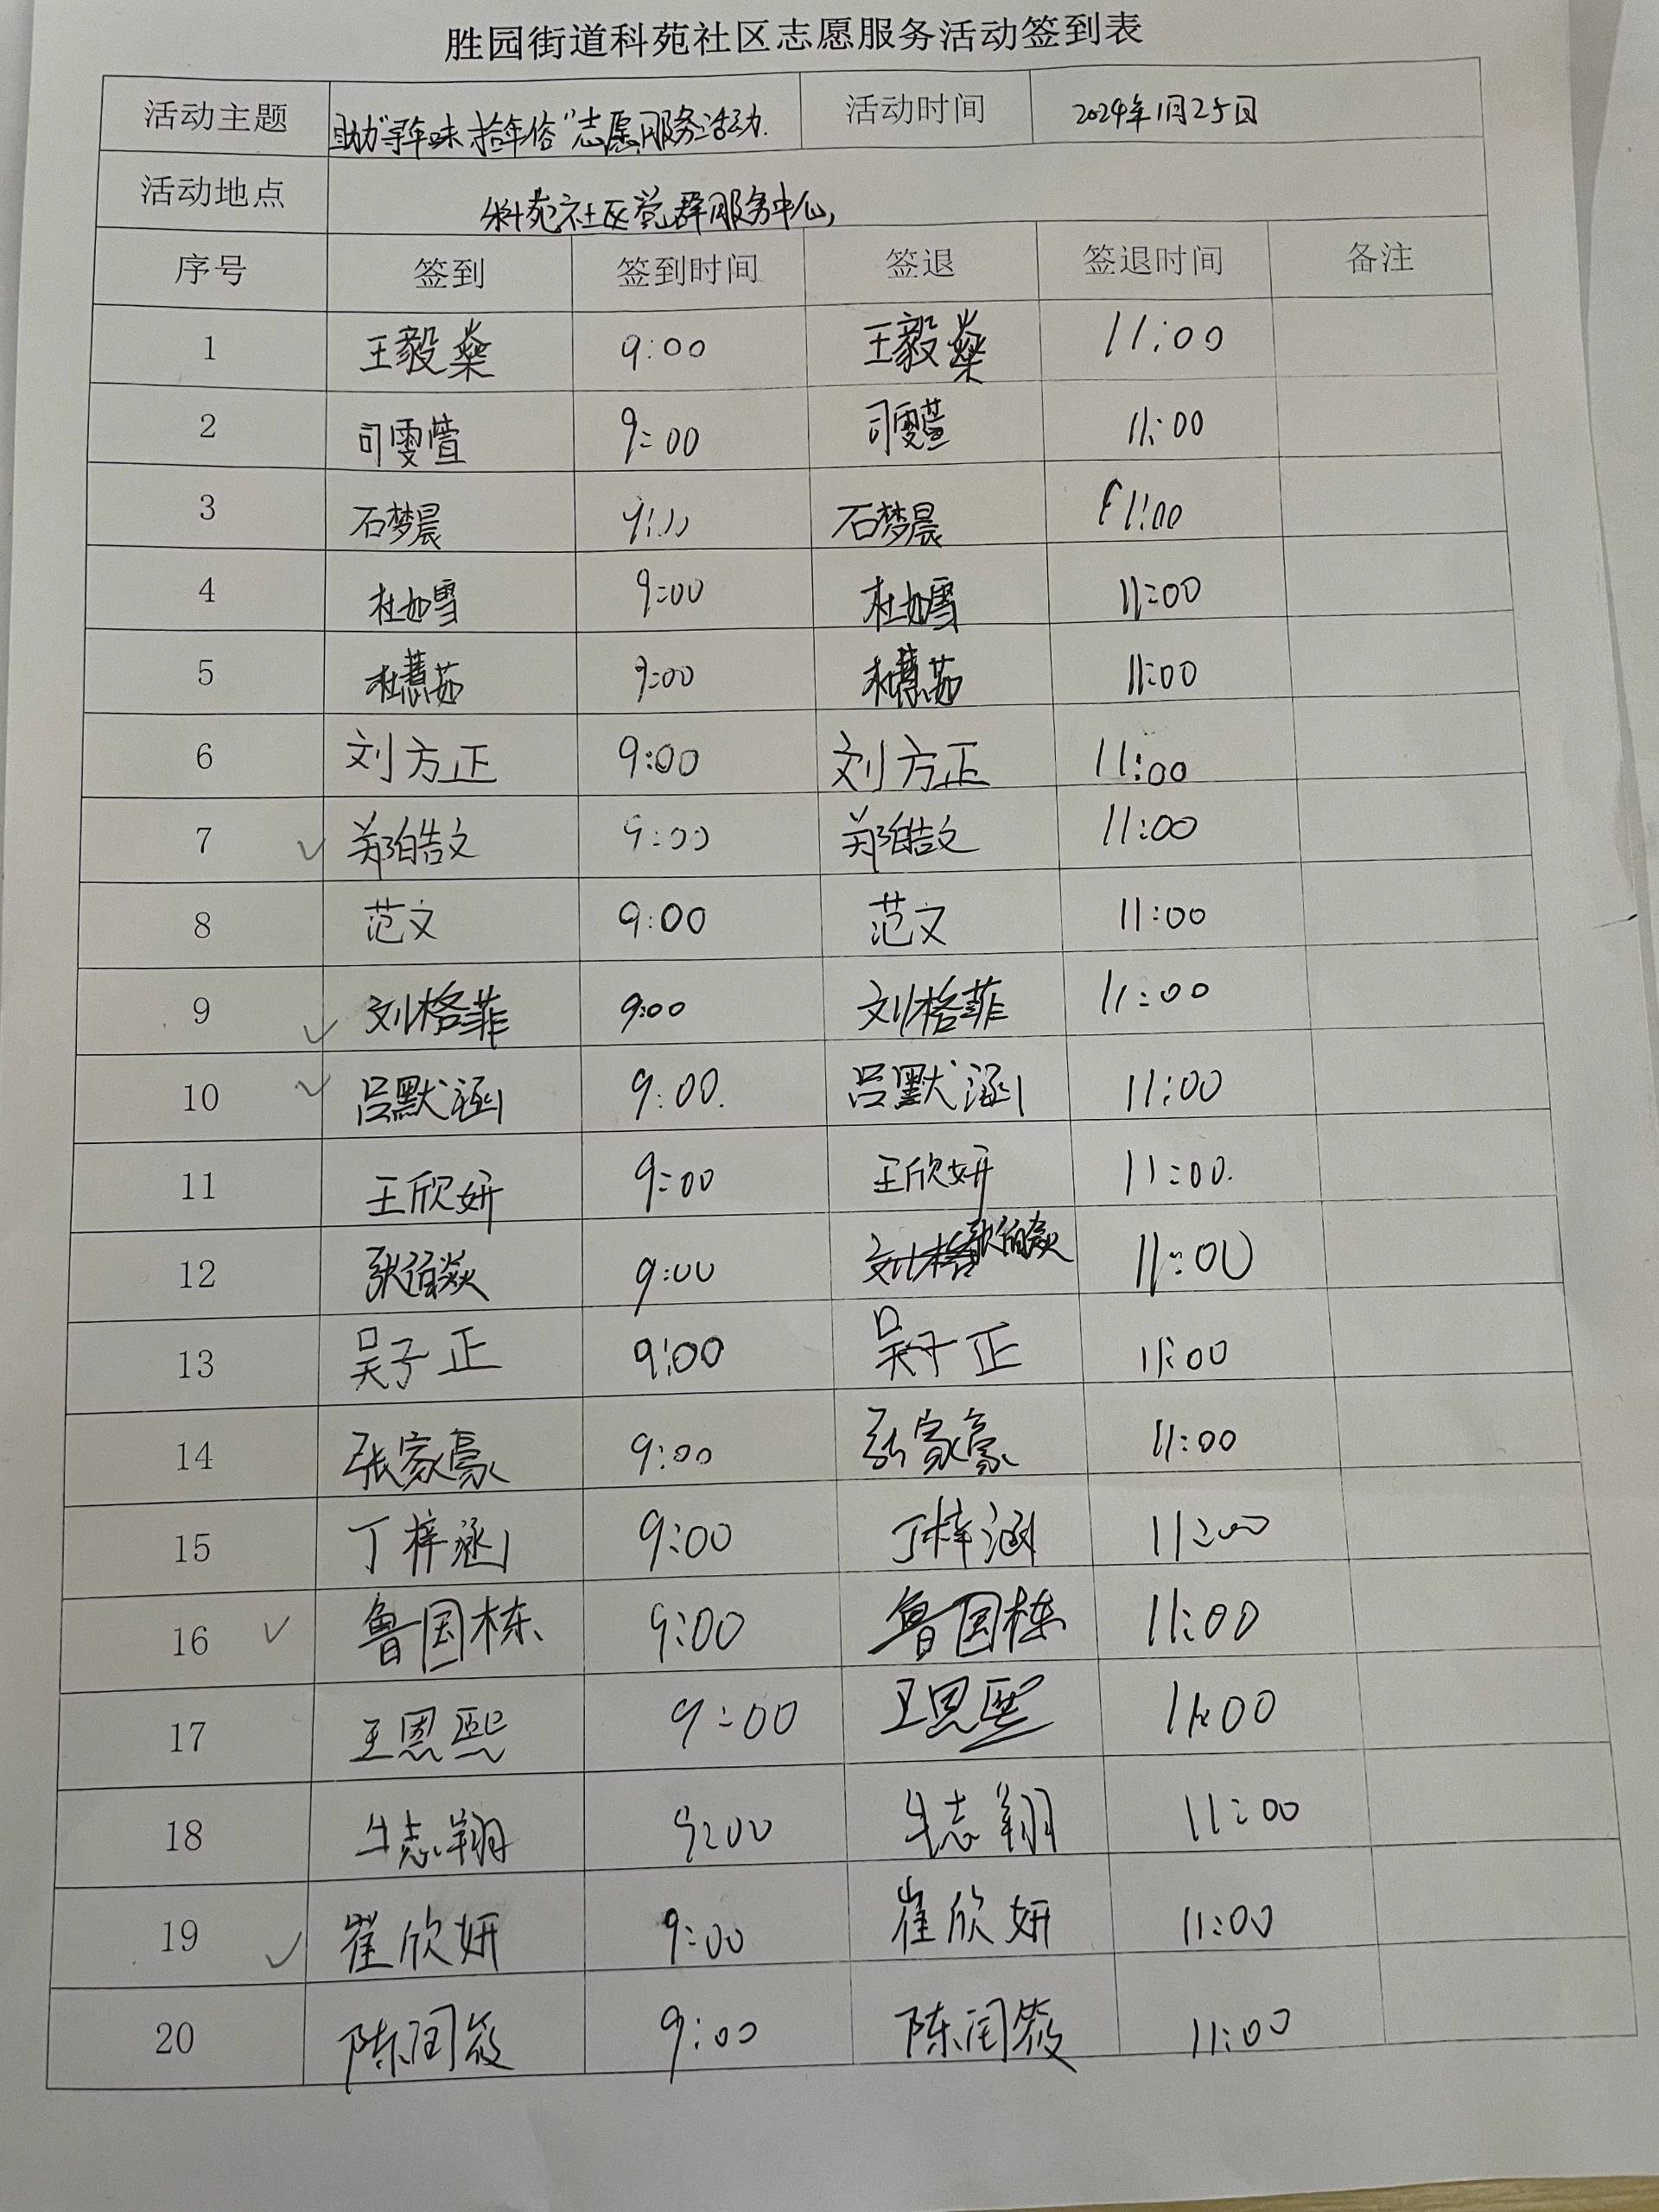 胜园街道科苑社区志愿服务活动签到表
活动主题 助力“寻年味 拾年俗”志愿服务活动. 活动时间 2024年1月25日
活动地点 科苑社区党群服务中心
序号 签到 签到时间 签退 签退时间 备注
1 王毅燊 9:00 王毅燊 11:00
2 司雯萱 9:00 司雯萱 11:00
3 石梦晨 石梦晨 11:00
4 杜如雪 9:00 杜如雪 11:00
5 杜慧茹 9:00 杜慧茹 11:00
6 刘方正 9:00 刘方正 11:00
7 郑皓文 9:00 郑皓文 11:00
8 范文 9:00 范文 11:00
9 刘格菲 9:00 刘格菲 11:00
10 吕默涵 9:00. 吕默涵 11:00
11 王欣妍 9:00 王欣妍 11:00.
12 9:00 11:00
13 吴子正 9:00 吴子正 11:00
14 张家豪 9:00 张家豪 11:00
15 丁梓涵 9:00 丁梓涵 11:00
16 鲁国栋 9:00 鲁国栋 11:00
17 王恩熙 9:00 王恩熙 11:00
18 牛志翔 9:00 牛志翔 11:00
19 崔欣妍 9:00 崔欣妍 11:00
20 陈闰筱 9:00 陈闰筱 11:00